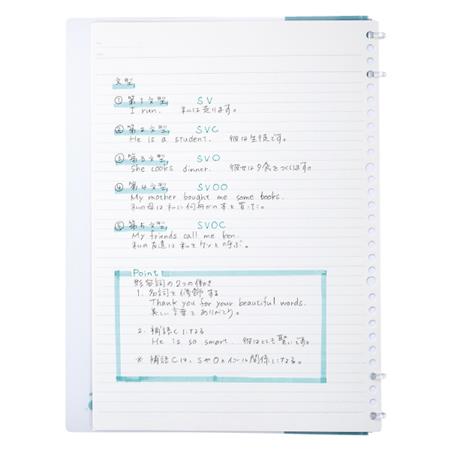 文型
① 第1文型 SV
I run. 私は走ります。
② 第2文型 SVC
He is a student. 彼は生徒です。
③ 第3文型 SVO
She cooks dinner. 彼女は夕食をつくります。
④ 第4文型 SVOO
My mother bought me some books.
私の母は私に何冊かの本を買った。
⑤ 第5文型 SVOC
My friends call me ken.
私の友達は私をケンと呼ぶ。
Point
形容詞の2つの働き
1. 名詞を修飾する
Thank you for your beautiful words.
美しい言葉をありがとう。
2. 補語Cになる
He is so smart. 彼はとても賢いです。
※ 補語Cは、SやOとイコール関係になる。